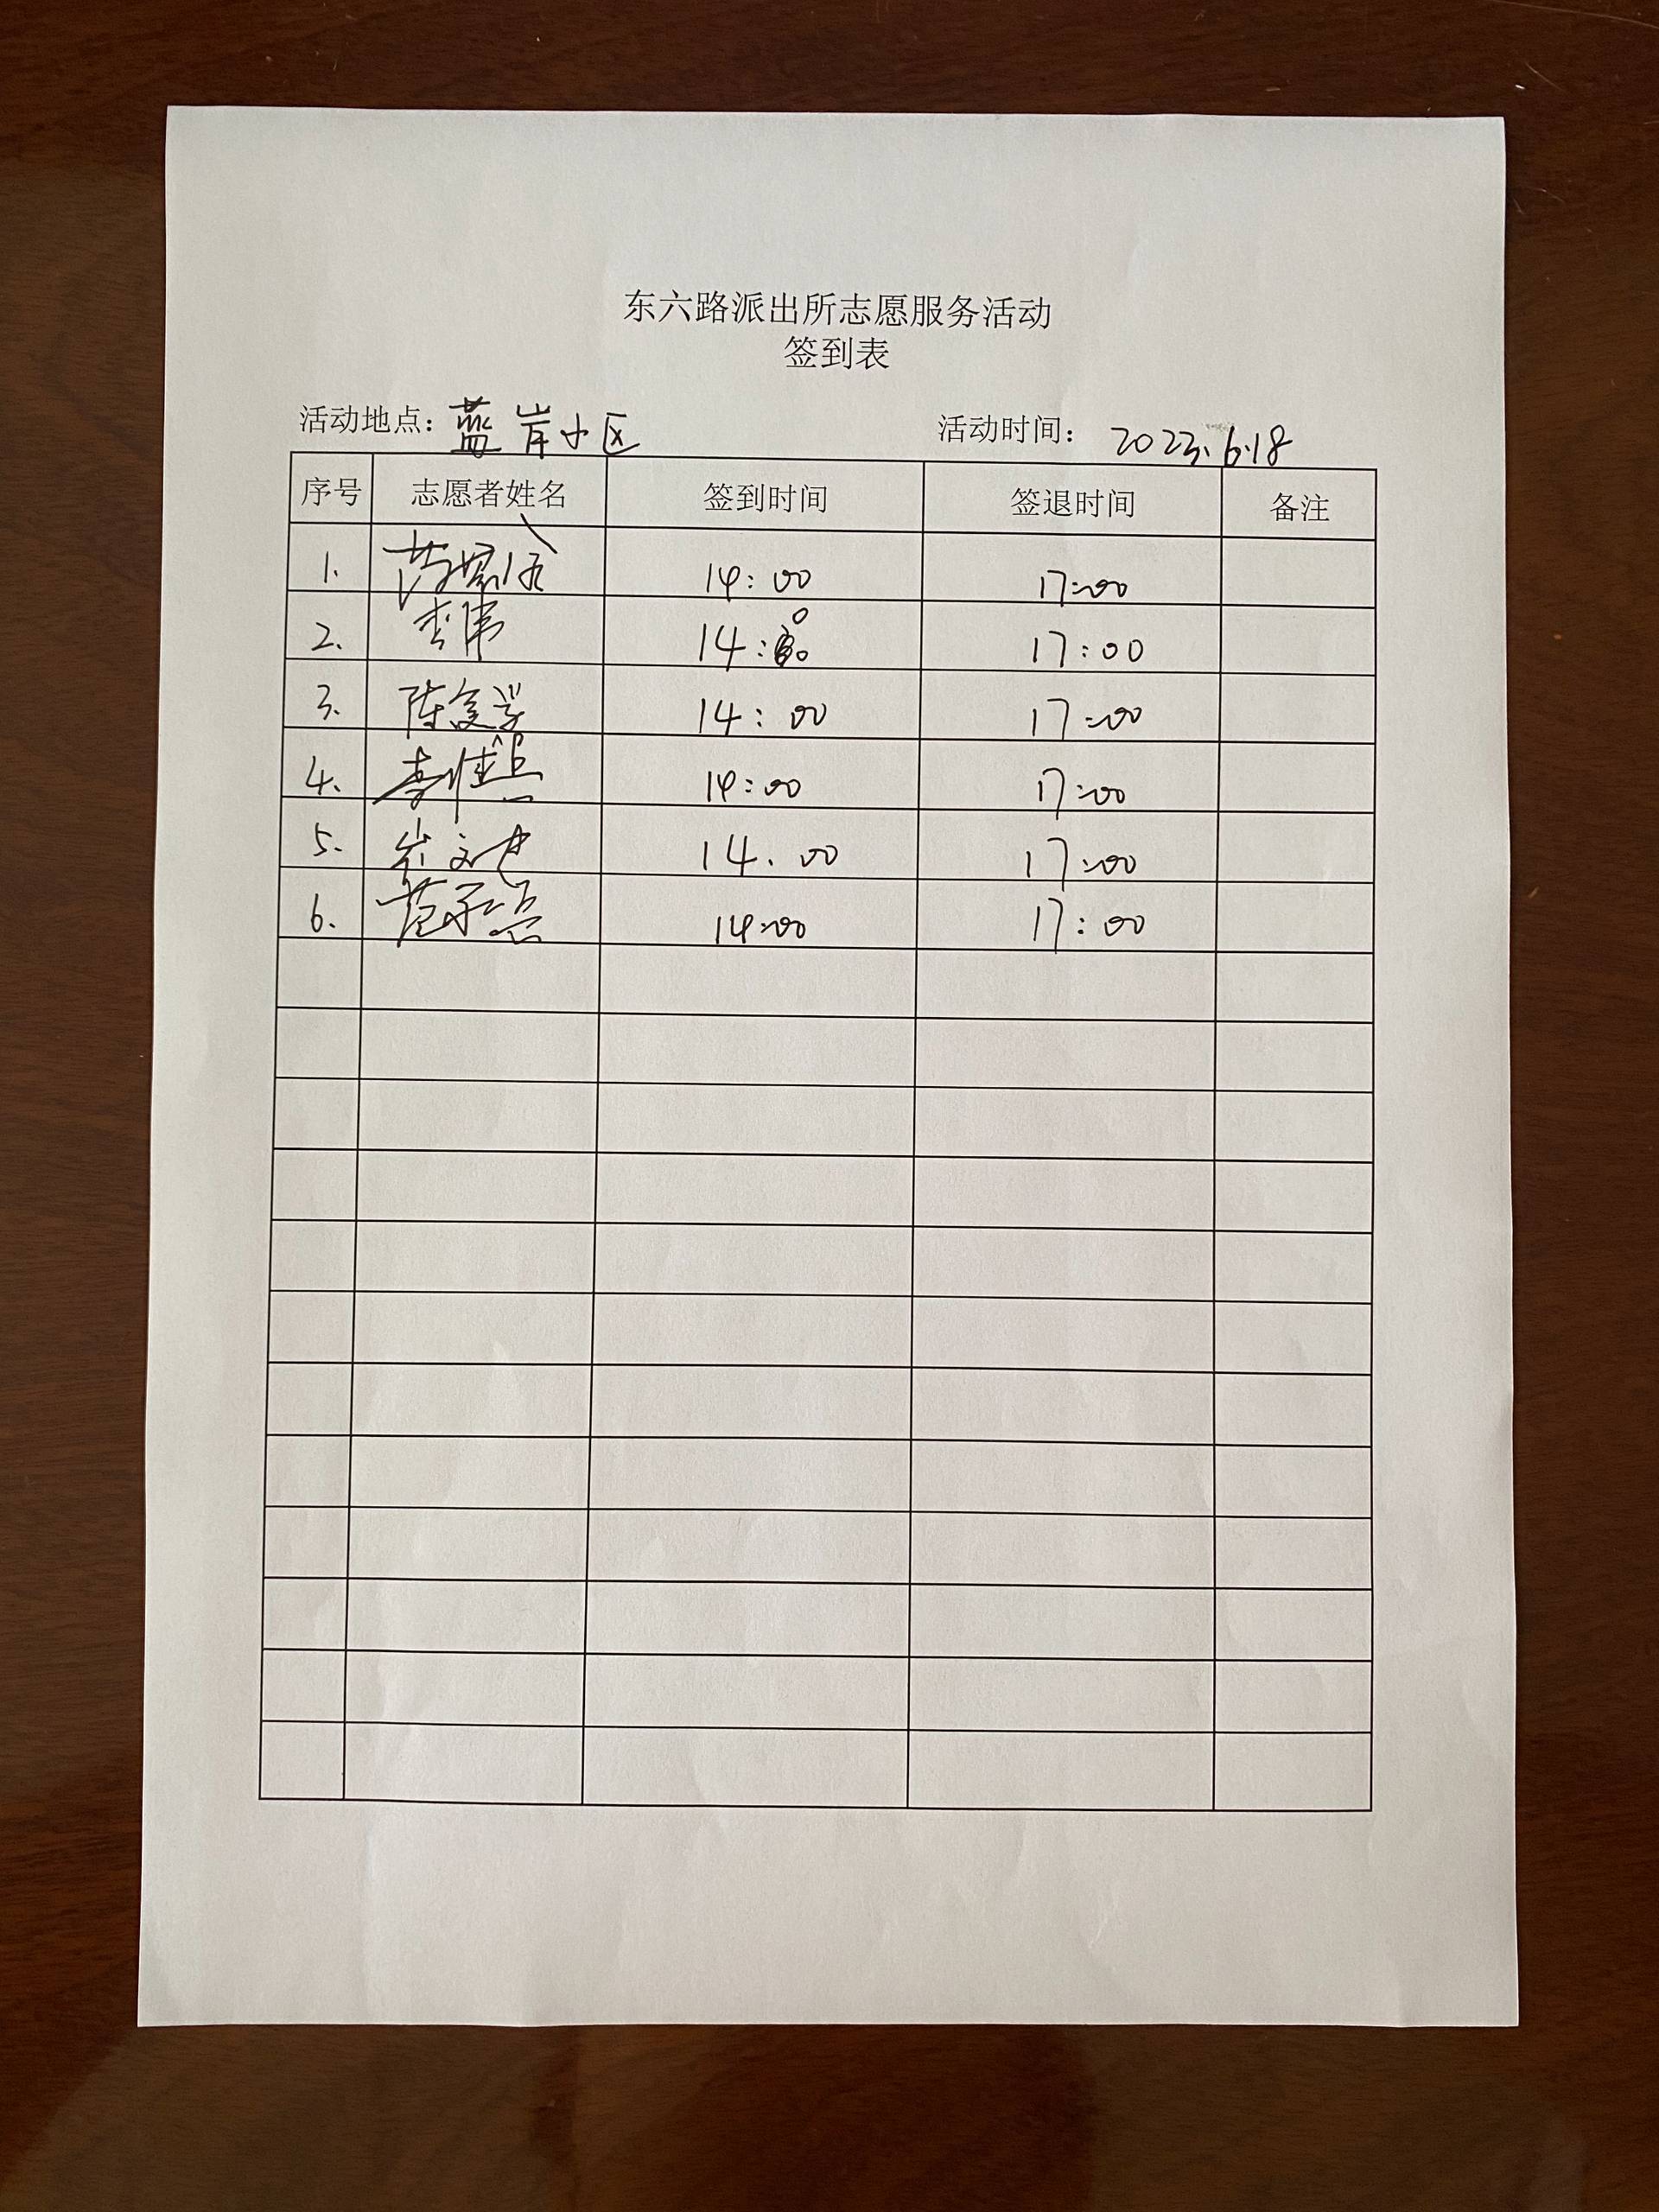 东六路派出所志愿服务活动
签到表
活动地点：蓝岸小区 活动时间：2023.6.18
序号 志愿者姓名 签到时间 签退时间 备注
1. 14:00 17:00
2. 李伟 14:00 17:00
3. 陈复学 14:00 17:00
4. 14:00 17:00
5. 14:00 17:00
6. 14:00 17:00